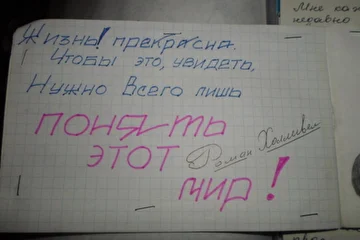 Мне каж
недавно
Жизнь! прекрасна.
Чтобы это, увидеть,
Нужно Всего лишь
ПОНЯТЬ
ЭТОТ
Роман
мир!